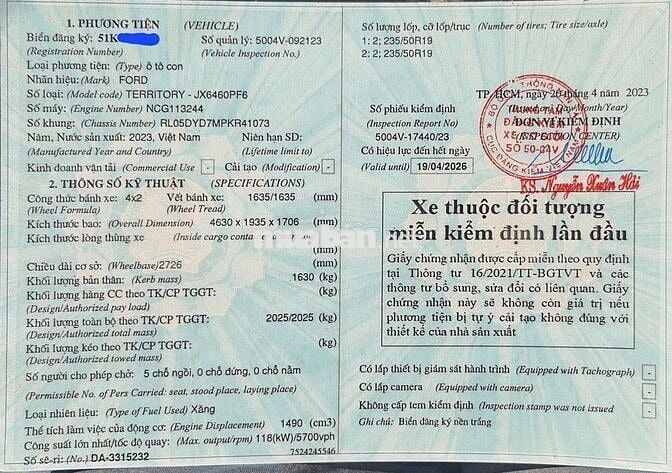 1. PHƯƠNG TIỆN (VEHICLE)
Biển đăng ký: 51K Số quản lý: 5004V-092123
(Registration Number) (Vehicle Inspection No.)
Loại phương tiện: (Type) ô tô con
Nhãn hiệu: (Mark) FORD
Số loại: (Model code) TERRITORY - JX6460PF6
Số máy: (Engine Number) NCG113244
Số khung: (Chassis Number) RL05DYD7MPKR41073
Năm, Nước sản xuất: 2023, Việt Nam Niên hạn SD:
(Manufactured Year and Country) (Lifetime limit to)
Kinh doanh vận tải (Commercial Use) - Cải tạo (Modification) -
2. THÔNG SỐ KỸ THUẬT (SPECIFICATIONS)
Công thức bánh xe: 4x2 Vết bánh xe: 1635/1635 (mm)
(Wheel Formula) (Wheel Tread)
Kích thước bao: (Overall Dimension) 4630 x 1935 x 1706 (mm)
Kích thước lòng thùng xe (Inside cargo conta (mm)
Chiều dài cơ sở: (Wheelbase) 2726 (mm)
Khối lượng bản thân: (Kerb mass) 1630 (kg)
Khối lượng hàng CC theo TK/CP TGGT: (kg)
(Design/Authorized pay load)
Khối lượng toàn bộ theo TK/CP TGGT: 2025/2025 (kg)
(Design/Authorized total mass)
Khối lượng kéo theo TK/CP TGGT: (kg)
(Design/Authorized towed mass)
Số người cho phép chở: 5 chỗ ngồi, 0 chỗ đứng, 0 chỗ nằm
(Permissible No. of Pers Carried: seat, stood place, laying place)
Loại nhiên liệu: (Type of Fuel Used) Xăng
Thể tích làm việc của động cơ: (Engine Displacement) 1490 (cm3)
Công suất lớn nhất/tốc độ quay: (Max. output/rpm) 118(kW)/5700vph
Số sê-ri: (No.) DA-3315232 7524245546
Số lượng lốp, cỡ lốp/trục (Number of tires; Tire size/axle)
1: 2; 235/50R19
2: 2; 235/50R19
TP. HCM, ngày 20 tháng 4 năm 2023
Số phiếu kiểm định (Issued on: Day/Month/Year)
(Inspection Report No) ĐƠN VỊ KIỂM ĐỊNH
5004V-17440/23 (INSPECTION CENTER)
Có hiệu lực đến hết ngày
(Valid until) 19/04/2026
TRUNG TÂM
ĐĂNG KIỂM
XE CƠ GIỚI
SỐ 50-04V
CỤC ĐĂNG KIỂM VIỆT NAM
KS. Nguyễn Xuân Hải
Xe thuộc đối tượng
miễn kiểm định lần đầu
Giấy chứng nhận được cấp miễn theo quy định
tại Thông tư 16/2021/TT-BGTVT và các
thông tư bổ sung, sửa đổi có liên quan. Giấy
chứng nhận này sẽ không còn giá trị nếu
phương tiện bị tự ý cải tạo không đúng với
thiết kế của nhà sản xuất
Có lắp thiết bị giám sát hành trình (Equipped with Tachograph) -
Có lắp camera (Equipped with camera) -
Không cấp tem kiểm định (Inspection stamp was not issued) -
Ghi chú: Biển đăng ký nền trắng